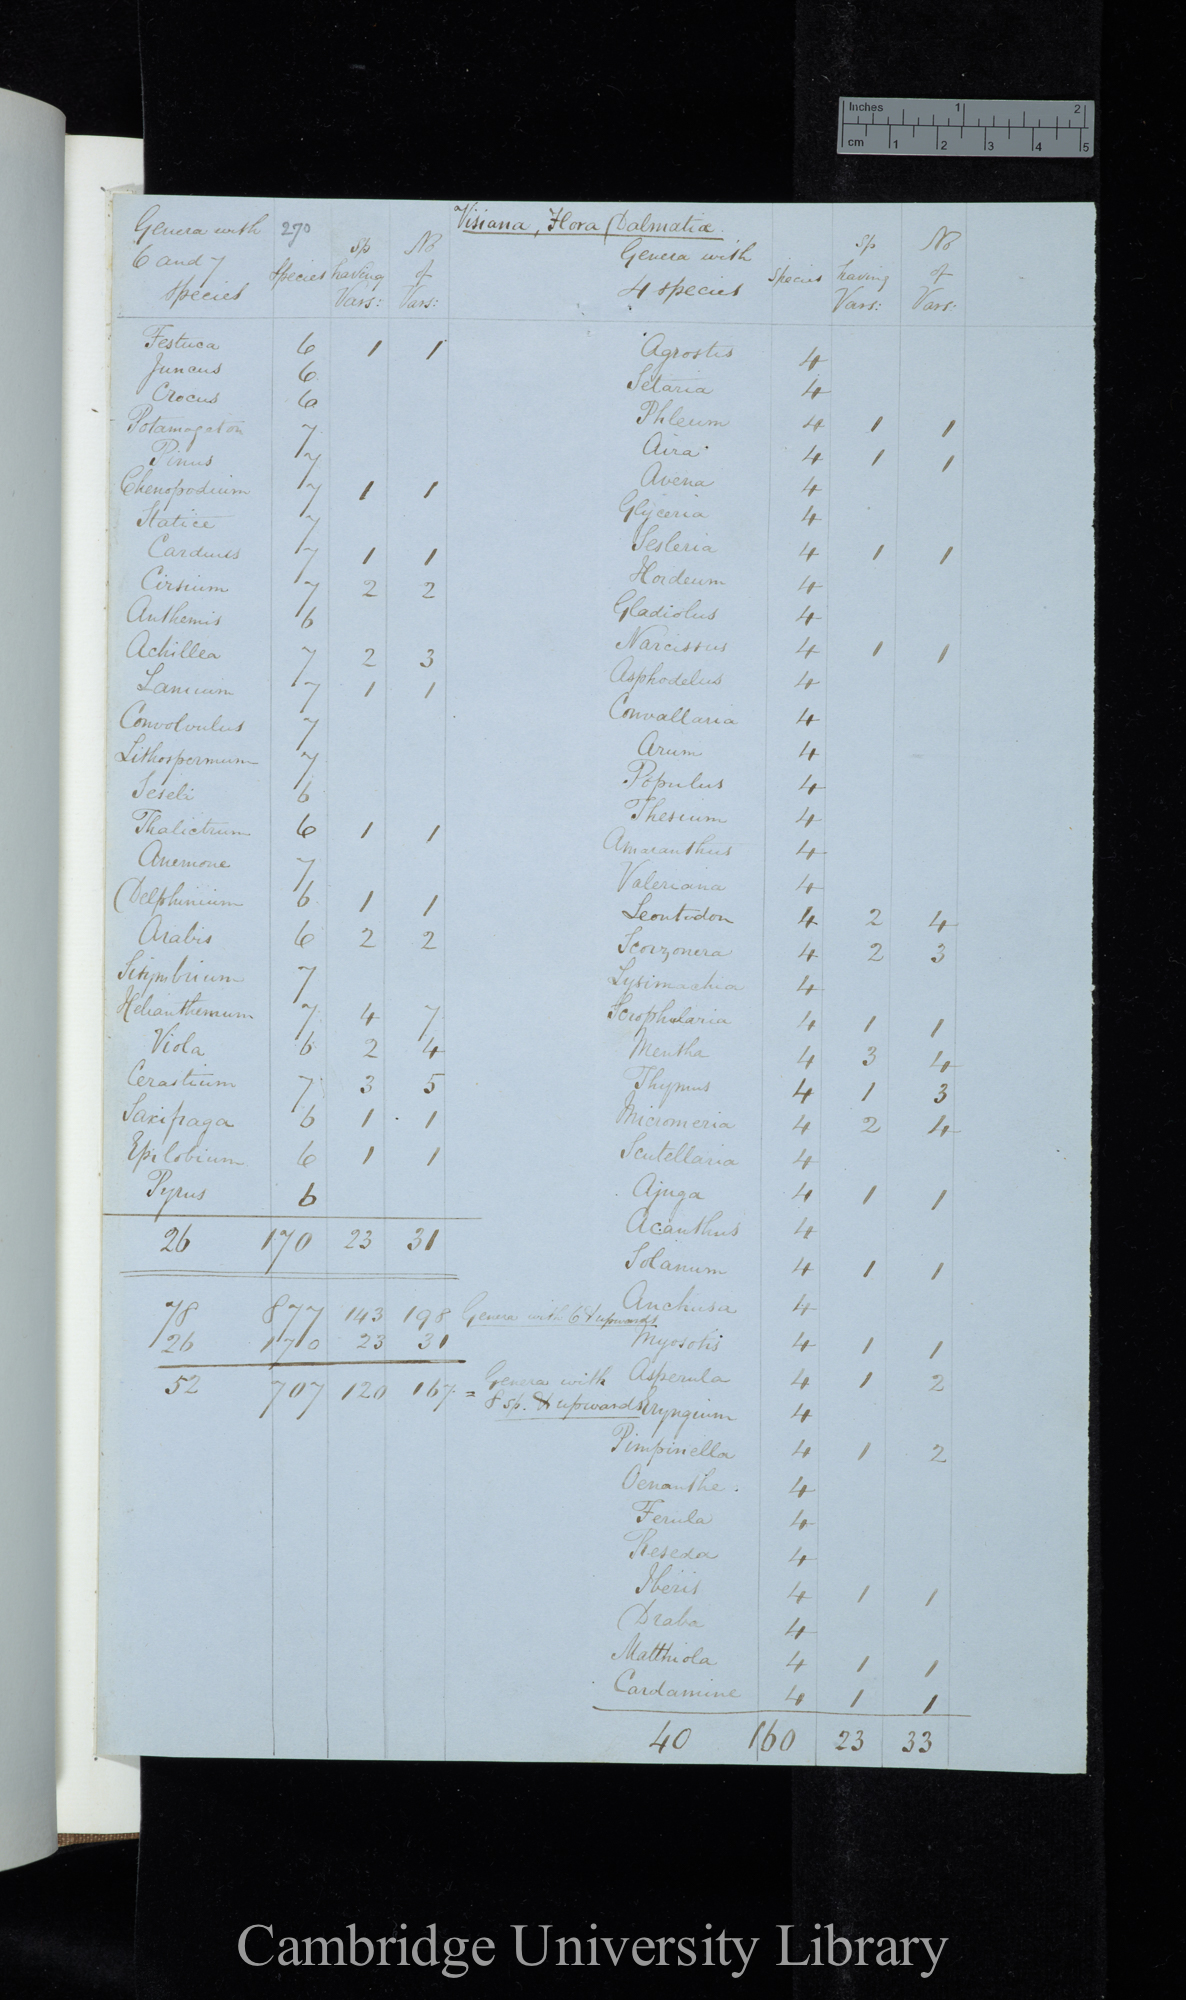 Inches 1 2
cm 1 2 3 4 5
Visiana, Flora Dalmatiæ.
Genera with 6 and 7 species 270 Species Sp having Vars: No of Vars:
Festuca 6 1 1
Juncus 6
Crocus 6
Potamogeton 7
Pinus 7
Chenopodium 7 1 1
Statice 7
Carduus 7 1 1
Cirsium 7 2 2
Anthemis 6
Achillea 7 2 3
Lamium 7 1 1
Convolvulus 7
Lithospermum 7
Seseli 6
Thalictrum 6 1 1
Anemone 7
Delphinium 6 1 1
Arabis 6 2 2
Sisymbrium 7
Helianthemum 7 4 7
Viola 6 2 4
Cerastium 7 3 5
Saxifraga 6 1 1
Epilobium 6 1 1
Pyrus 6
26 170 23 31
78 877 143 198 Genera with 6 & upwards
26 170 23 31
52 707 120 167 = Genera with 8 sp. & upwards
Genera with 4 species Species Sp having Vars: No of Vars:
Agrostis 4
Setaria 4
Phleum 4 1 1
Aira 4 1 1
Avena 4
Glyceria 4
Sesleria 4 1 1
Hordeum 4
Gladiolus 4
Narcissus 4 1 1
Asphodelus 4
Convallaria 4
Arum 4
Populus 4
Thesium 4
Amaranthus 4
Valeriana 4
Leontodon 4 2 4
Scorzonera 4 2 3
Lysimachia 4
Scrophularia 4 1 1
Mentha 4 3 4
Thymus 4 1 3
Micromeria 4 2 4
Scutellaria 4
Ajuga 4 1 1
Acanthus 4
Solanum 4 1 1
Anchusa 4
Myosotis 4 1 1
Asperula 4 1 2
Eryngium 4
Pimpinella 4 1 2
Oenanthe. 4
Ferula 4
Reseda 4
Iberis 4 1 1
Draba 4
Matthiola 4 1 1
Cardamine 4 1 1
40 160 23 33
Cambridge University Library